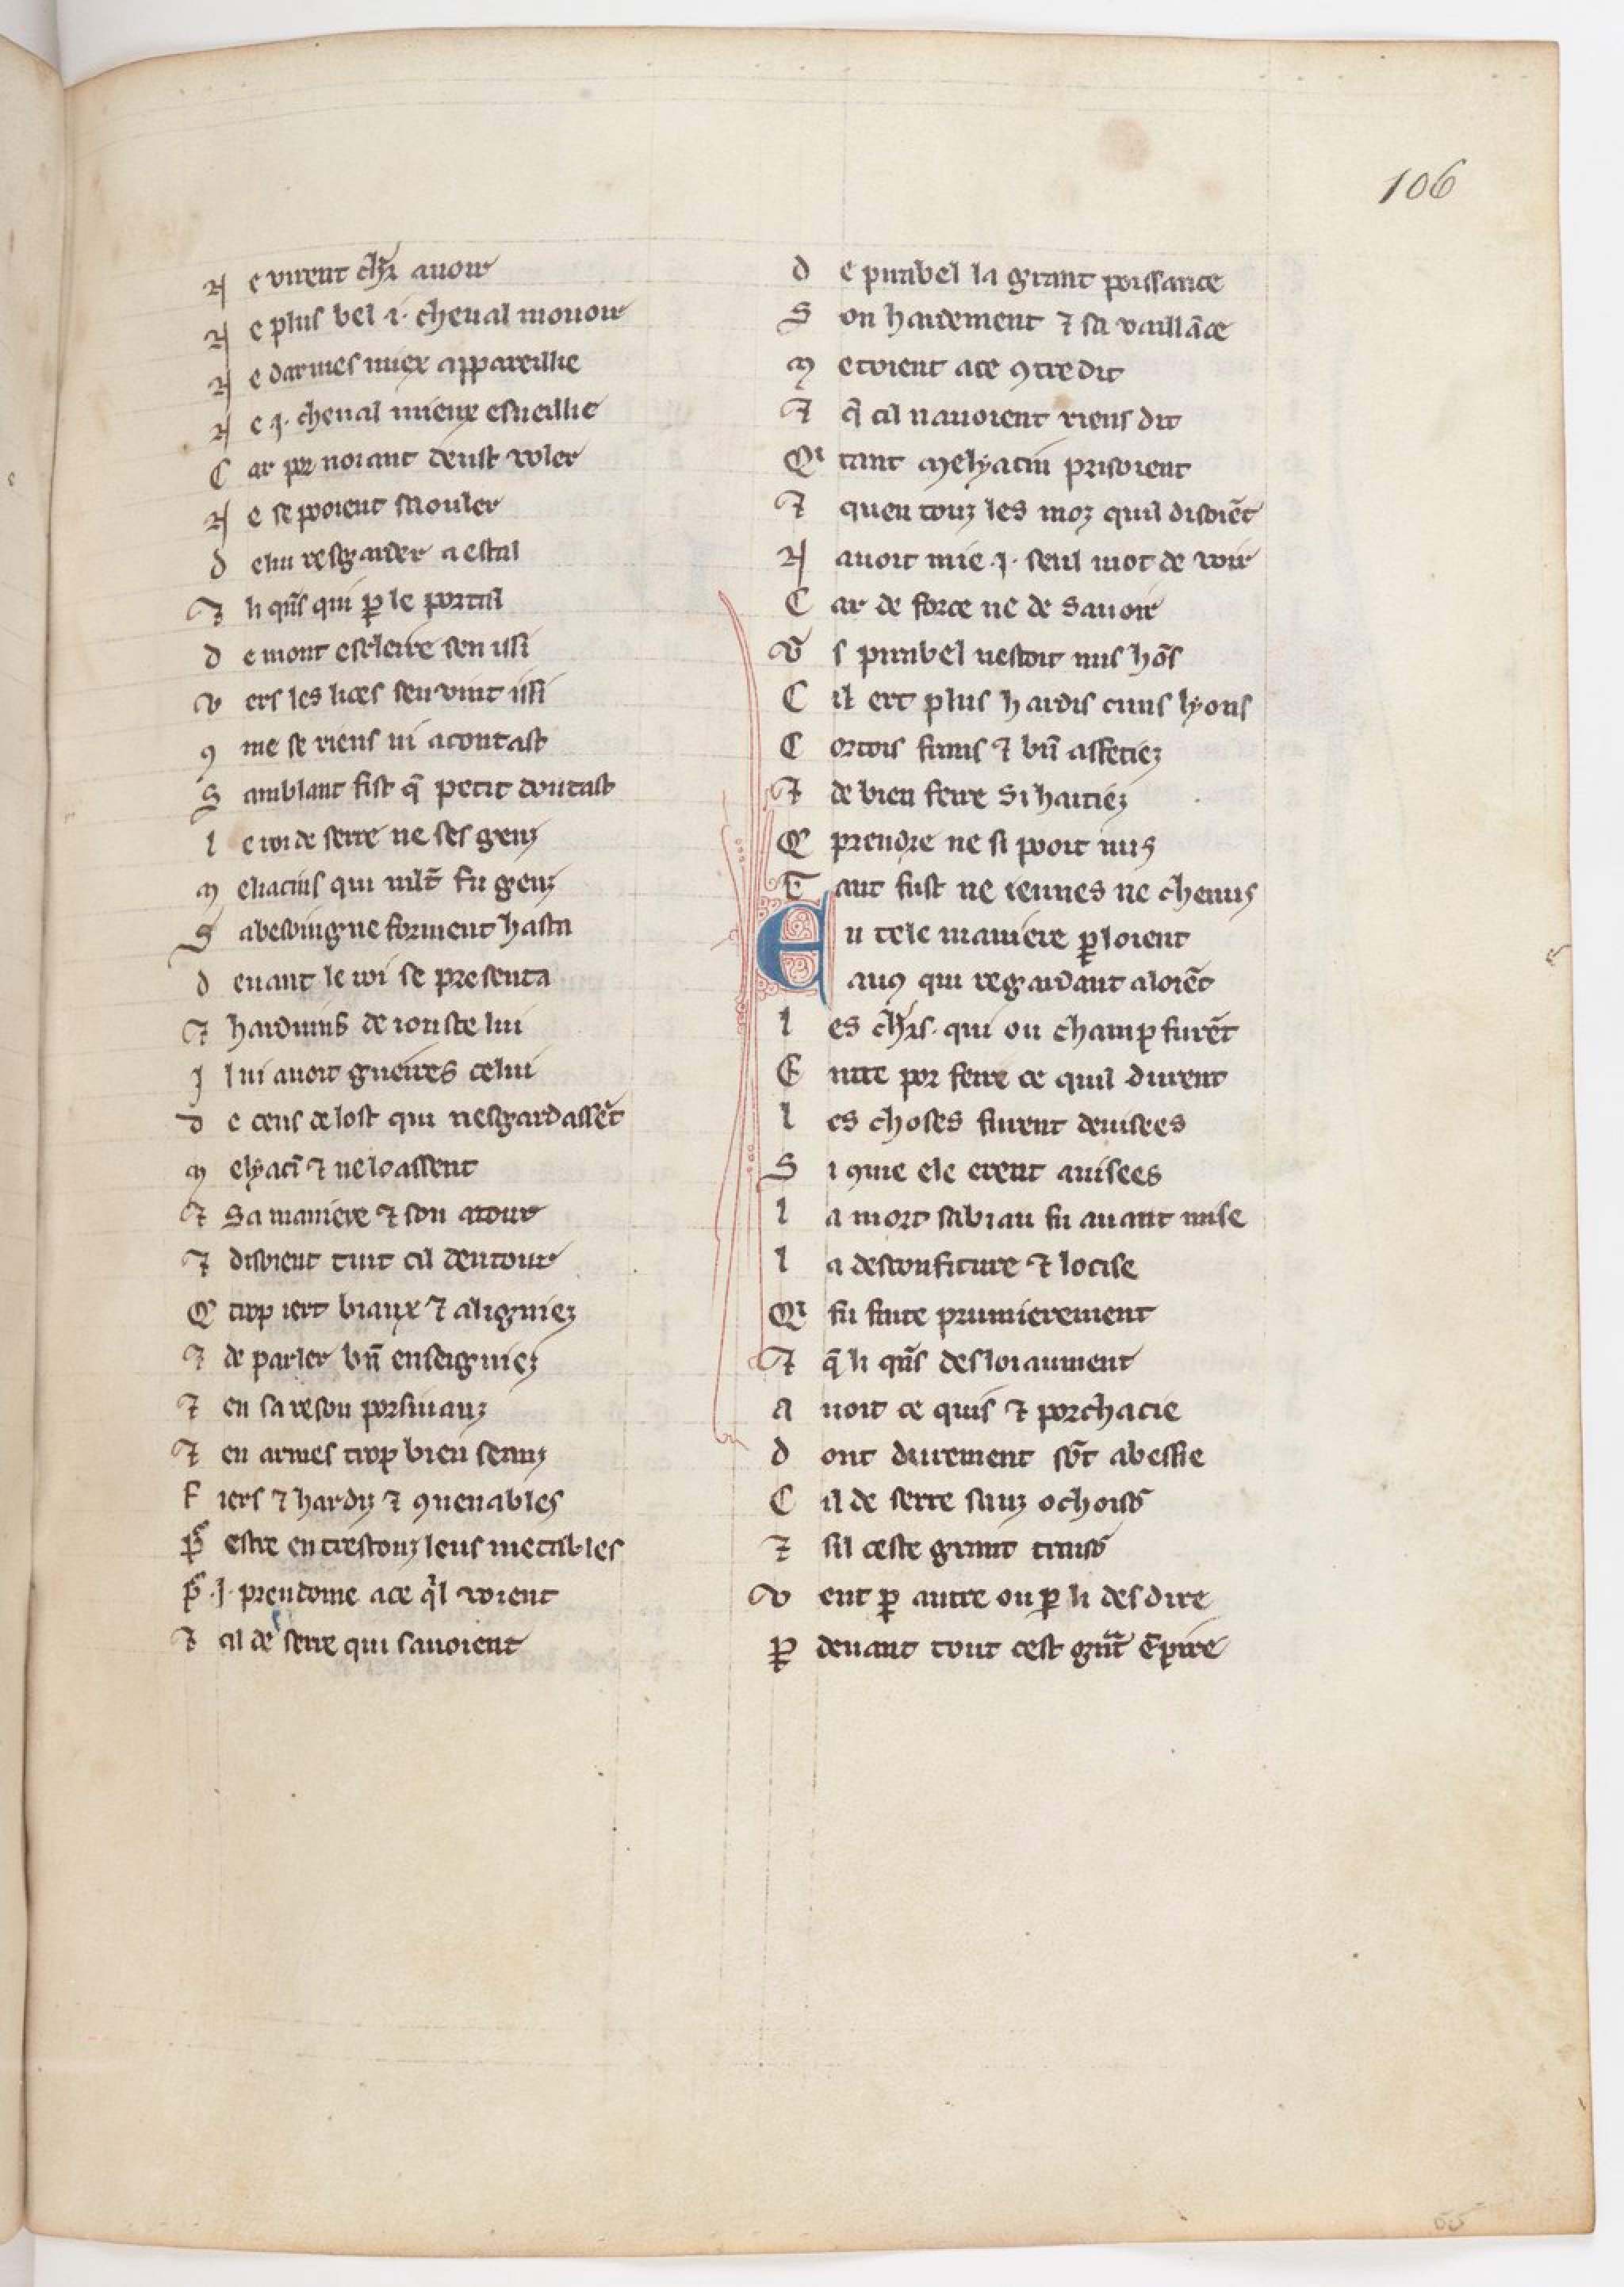 106
N e virent chꝛ auoir
N e plus bel .i. cheual mouoir
N e darmes miex appareillie
N e .j. cheual mieux esueillie
C ar por noiant deust voler
N e se pooient saouler
d elui resgarder a estal
⁊ li q̃ns qui ꝑ le portal
d e mont escleire sen issi
v ers les lices sen vint issi
ꝯ me se riens ni acontast
S amblant fist q̃ petit doutast
l e roi de serre ne ses genz
m eliacins qui ml̃t fu genz
S abesoingne forment hasta
d euant le roi se presenta
⁊ hardiuis de iouste lui
J l ni auoit gueires celui
d e ceus de lost qui nesgardassẽt
m elyaci̅ ⁊ ne loassent
⁊ sa maniere ⁊ son atour
⁊ disoient tuit cil dentour
Q trop iert biaux ⁊ aligniez
⁊ de parler bn̄ enseigniez
⁊ en sa reson porsiuanz
⁊ en armes trop bien seanz
F iers ⁊ hardiz ⁊ ꝯuenables
P estre en trestouz leus metables
P .J. preudome ace q̃l voient
⁊ cil de serre qui sauoient
d e pinabel la grant poissance
S on hardement ⁊ sa vaillãce
m etoient ace ꝯtredit
⁊ q̃ cil nauoient riens dit
Qi tant melyacin prisoient
⁊ quen touz les moz quil disoiẽt
N auoit mie .j. seul mot de voir
C ar de force ne de sauoir
V̄ s pinabel nestoit nus hõs
C il ert plus hardis cuns lyons
C ortois frans ⁊ bn̄ affetiez
⁊ de bien fere si haitiez
Q prendre ne si pooit nus
T ant fust ne iennes ne chenus
E n tele maniere ꝑloient
C aus qui regardant aloiẽt
l es chꝛs. qui ou champ furẽt
E ntre por fere ce quil durent
l es choses furent deuisees
S i ꝯme ele erent auisees
l a mort sabiau fu auant mise
l a desconfiture ⁊ locise
Qi fu faite prumierement
⁊ q̃ li q̃ns desloiaument
a uoit ce quis ⁊ porchacie
d ont durement sõt abessie
C il de serre sanz ochoisõ
⁊ sil ceste grant traisõ
v ent ꝑ autre ou ꝑ li desdire
Ꝑ deuant tout cest gñt ẽpire